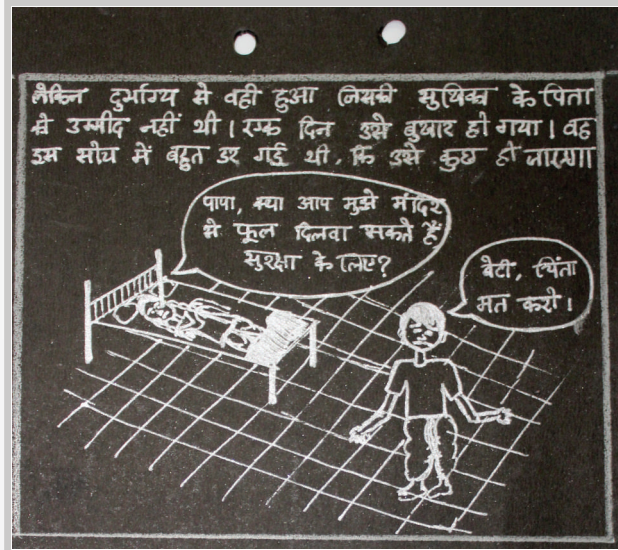 लेकिन दुर्भाग्य से वही हुआ जिसकी सुयिका के पिता
से उम्मीद नहीं थी। एक दिन उसे बुखार हो गया। वह
इस सोच में बहुत डर गई थी, कि उसे कुछ हो जाएगा
पापा, क्या आप मुझे मंदिर
से फूल दिलवा सकते हैं
सुरक्षा के लिए?
बेटी, चिंता
मत करो।